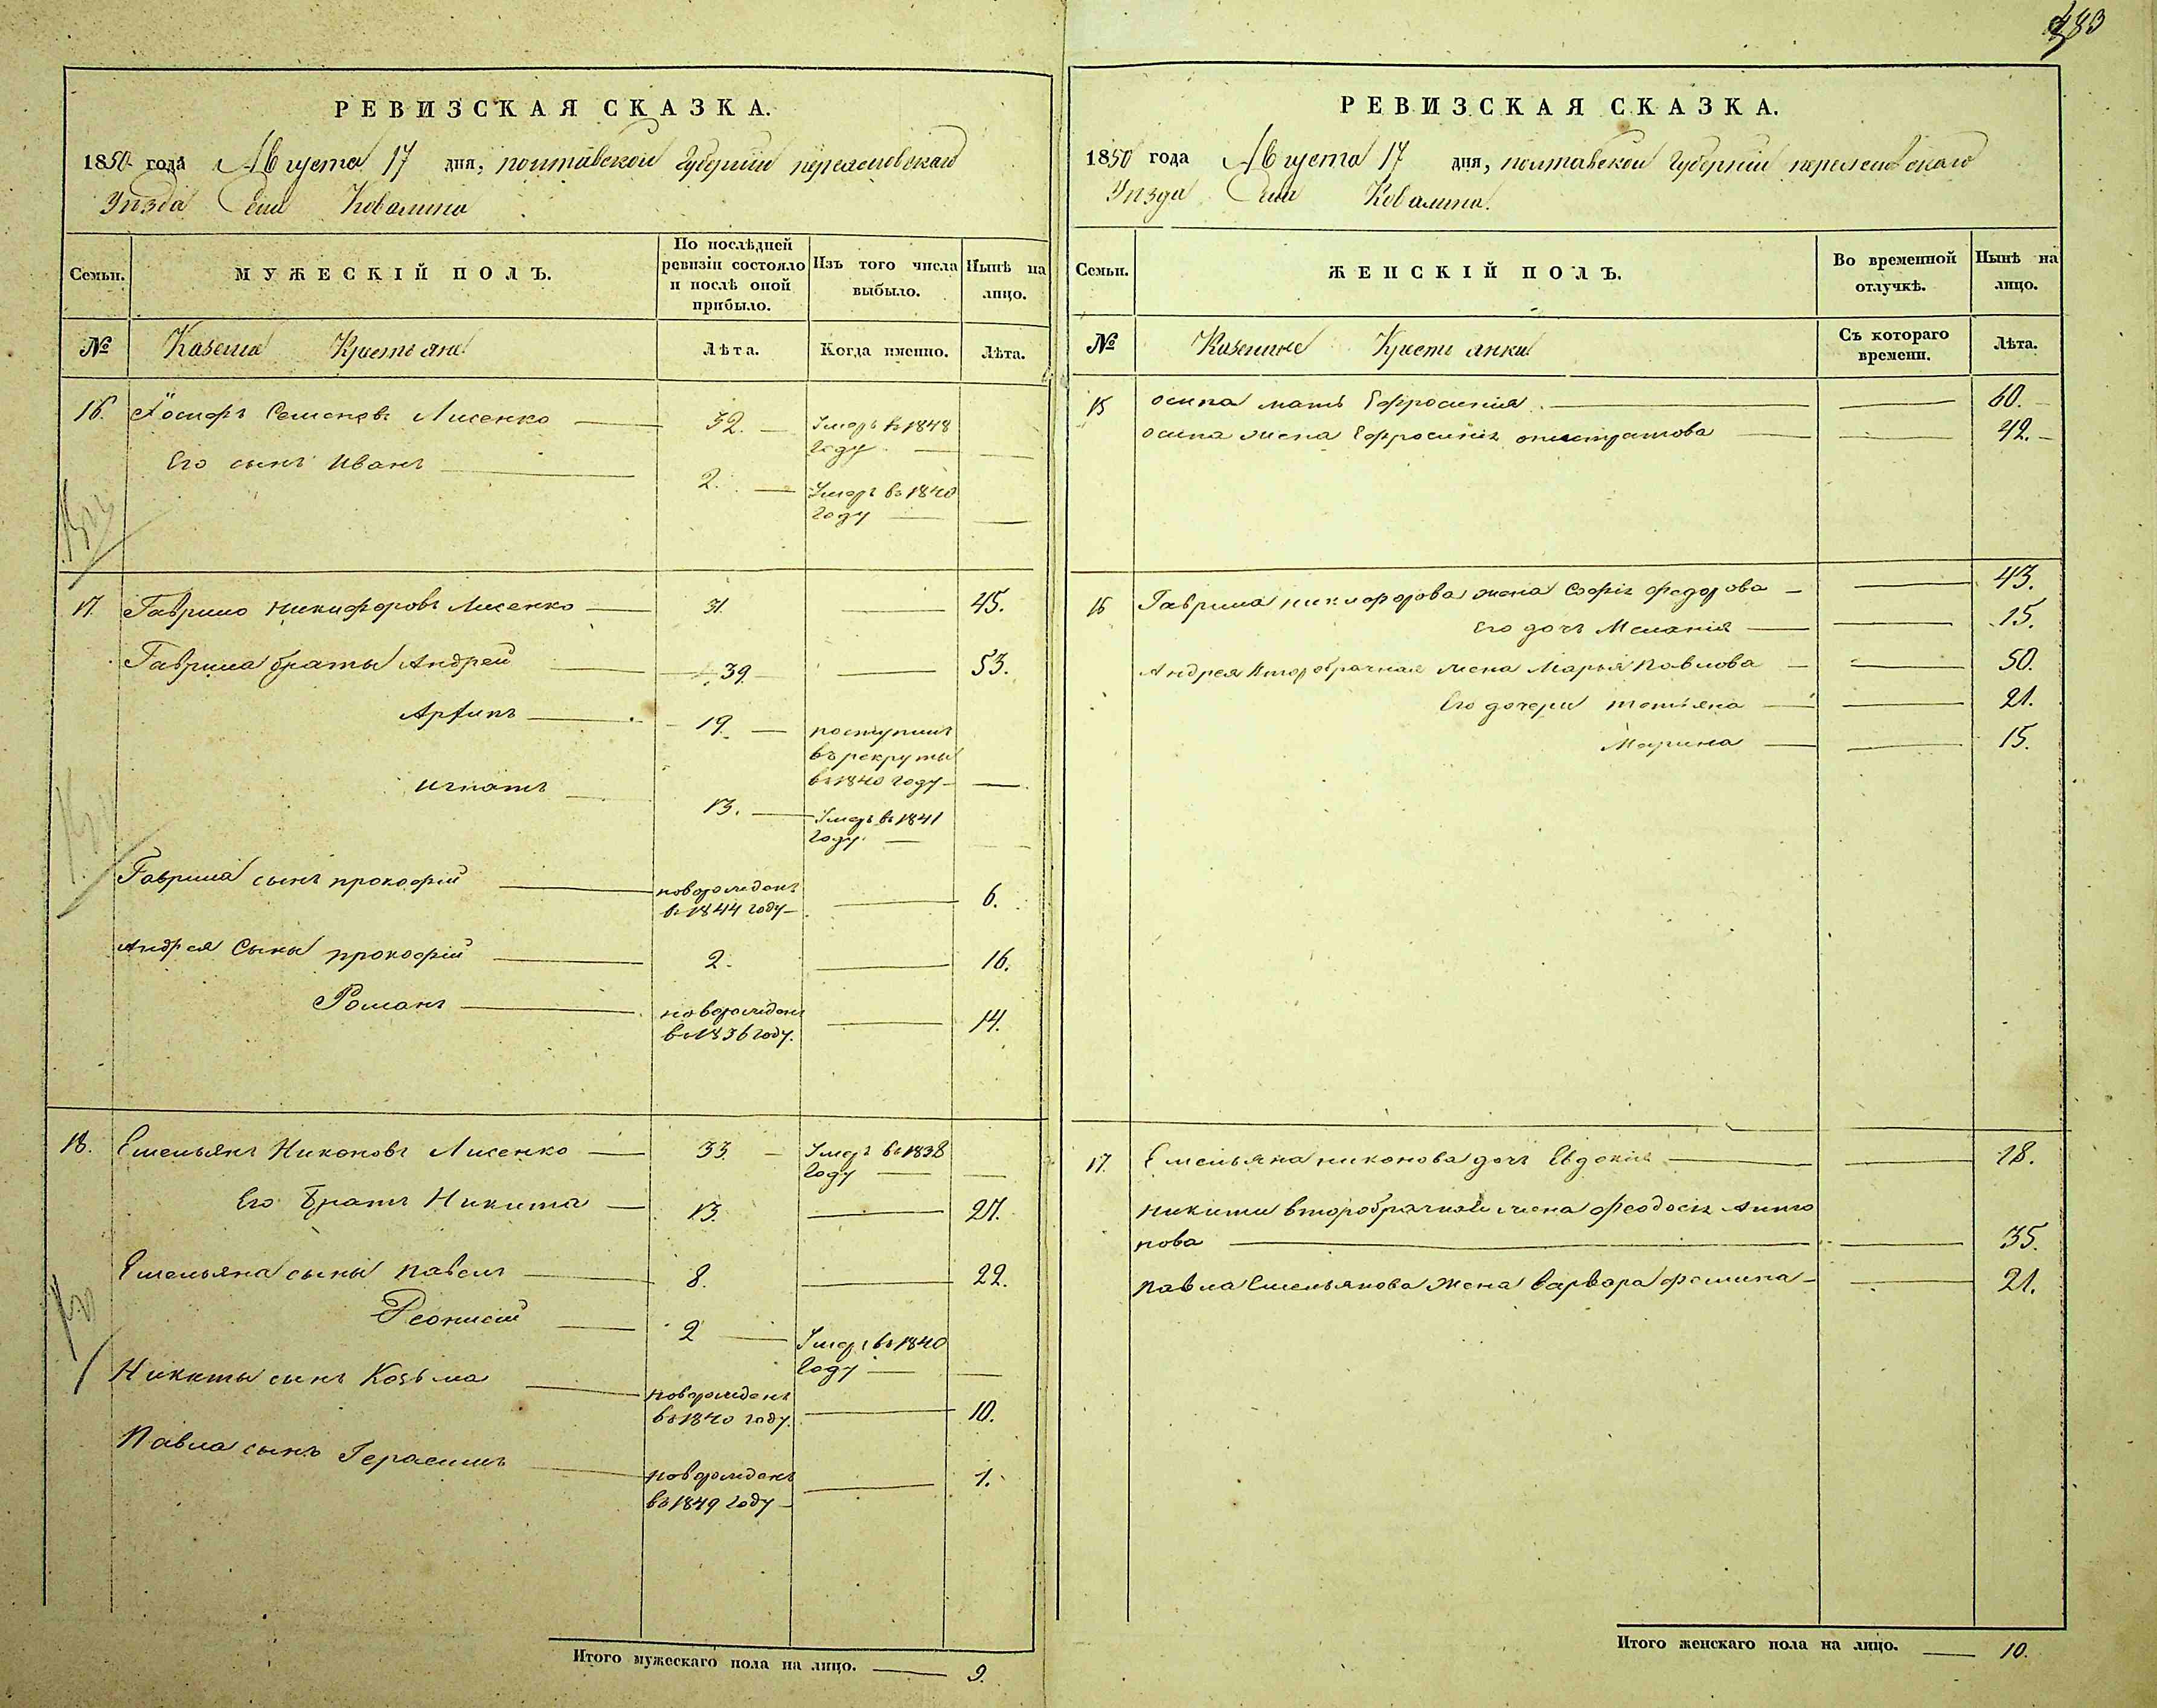 483
РЕВИЗСКАЯ СКАЗКА.
1850 года Августа 17 дня, полтавской Губернии переяславскаго
Уезда Села Ковалина
Семьи.
МУЖЕСКІЙ ПОЛЪ.
По послѣдней ревизіи состояло и послѣ оной прибыло.
Изъ того числа выбыло.
Нынѣ на лицо.
№
Казенные Крестьяне
Лѣта.
Когда именно.
Лѣта.
16. Семеновъ Лисенко 32. Умеръ въ 1848 году
Его сынъ Иванъ 2. Умеръ въ 1840 году
17. Гаврило Никифоровъ Лисенко 31. 45.
Гаврила браты Андрей 39. 53.
19. поступилъ въ рекруты въ 1840 году
Игнатъ 13. Умеръ въ 1841 году
Гаврила сынъ прокофій новорожденъ въ 1844 году 6.
Андрея Сыны прокофій 2. 16.
Романъ новорожденъ въ 1836 году. 14.
18. Емельянъ Никоновъ Лисенко 33. Умеръ въ 1838 году
Его братъ Никита 13. 27.
Емельяна сыны павелъ 8. 22.
2 Умеръ въ 1840 году
Никиты сынъ Козьма новорожденъ въ 1840 году. 10.
Павла сынъ Герасимъ новорожденъ въ 1849 году 1.
Итого мужескаго пола на лицо. 9.
РЕВИЗСКАЯ СКАЗКА.
1850 года Августа 17 дня, полтавской Губерніи переяславскаго
Уезда Села Ковалина.
Семьи.
ЖЕНСКІЙ ПОЛЪ.
Во временной отлучкѣ.
Нынѣ на лицо.
№
Казенные Крестьянки
Съ котораго времени.
Лѣта.
15 осипа мать Ефросинія 60.
осипа жена Ефросинія 42.
16 Гаврила никифорова жена Софія федорова 43.
Его дочь Меланія 15.
Андрея второбрачная жена Марья павлова 50.
Его дочери татіяна 21.
Марина 15.
17. Емельяна никонова дочь Евдокія 18.
Никиты второбрачная жена феодосія Анто
нова 35.
павла Емельянова жена варвара фомина 21.
Итого женскаго пола на лицо. 10.